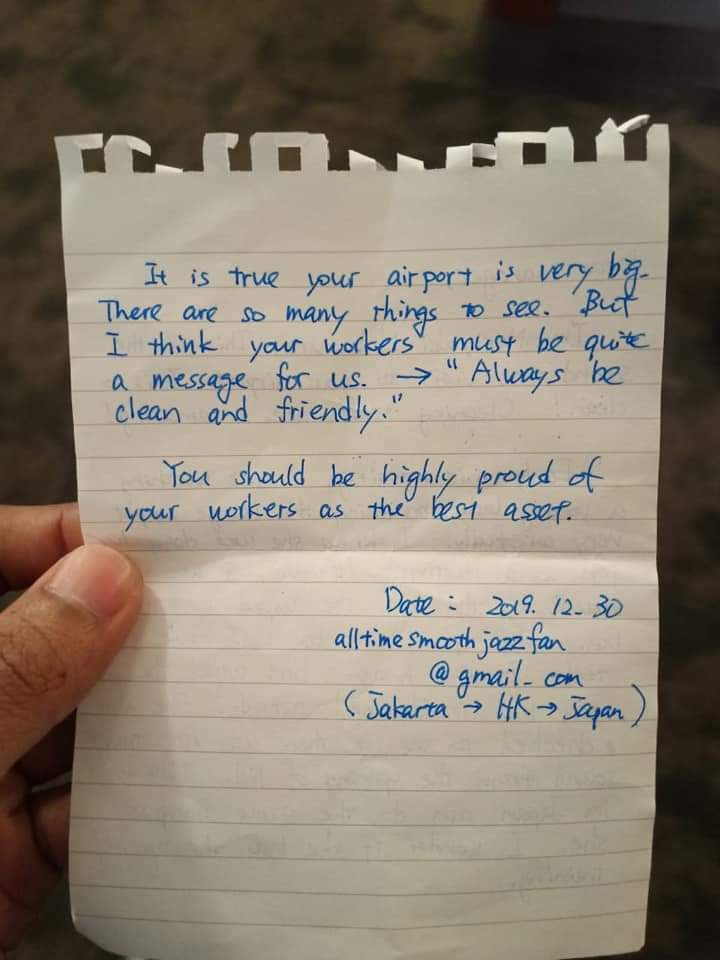 It is true your airport is very big.
There are so many things to see. But
I think your workers must be quite
a message for us. → "Always be
clean and friendly."
You should be highly proud of
your workers as the best asset.
Date : 2019. 12. 30
alltimesmoothjazzfan
@gmail.com
(Jakarta → HK → Japan)